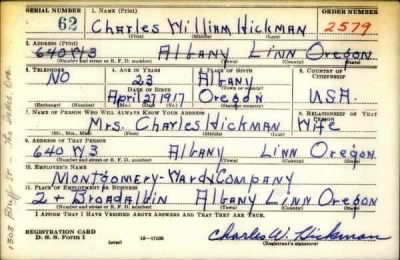 SERIAL NUMBER 1. NAME (Print) ORDER NUMBER
62 Charles William Hickman 2579
(First) (Middle) (Last)
2. ADDRESS (Print)
640 W 3 Albany Linn Oregon
(Number and street or R. F. D. number) (Town) (County) (State)
3. TELEPHONE 4. AGE IN YEARS 5. PLACE OF BIRTH 6. COUNTRY OF CITIZENSHIP
No 23 Albany
DATE OF BIRTH (Town or county)
April 27 1917 Oregon U.S.A.
(Exchange) (Number) (Mo.) (Day) (Yr.) (State or country)
7. NAME OF PERSON WHO WILL ALWAYS KNOW YOUR ADDRESS 8. RELATIONSHIP OF THAT PERSON
Mrs. Charles Hickman Wife
(Mr., Mrs., Miss) (First) (Middle) (Last)
9. ADDRESS OF THAT PERSON
640 W 3 Albany Linn Oregon
(Number and street or R. F. D. number) (Town) (County) (State)
10. EMPLOYER'S NAME
Montgomery-Ward Company
11. PLACE OF EMPLOYMENT OR BUSINESS
2 + Broadalbin Albany Linn Oregon
(Number and street or R. F. D. number) (Town) (County) (State)
I AFFIRM THAT I HAVE VERIFIED ABOVE ANSWERS AND THAT THEY ARE TRUE.
REGISTRATION CARD
D. S. S. Form 1 (over) 16—17105 Charles W. Hickman
(Registrant's signature)
1303 Bluff St. The Dalles Ore.